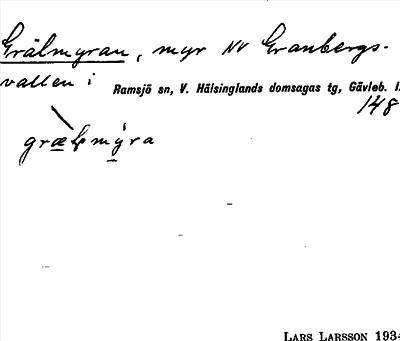 Grälmyran, myr NV Granbergs-
vallen i Ramsjö sn, V. Hälsinglands domsagas tg, Gävleb. l.
148
græɬmýra
LARS LARSSON 193